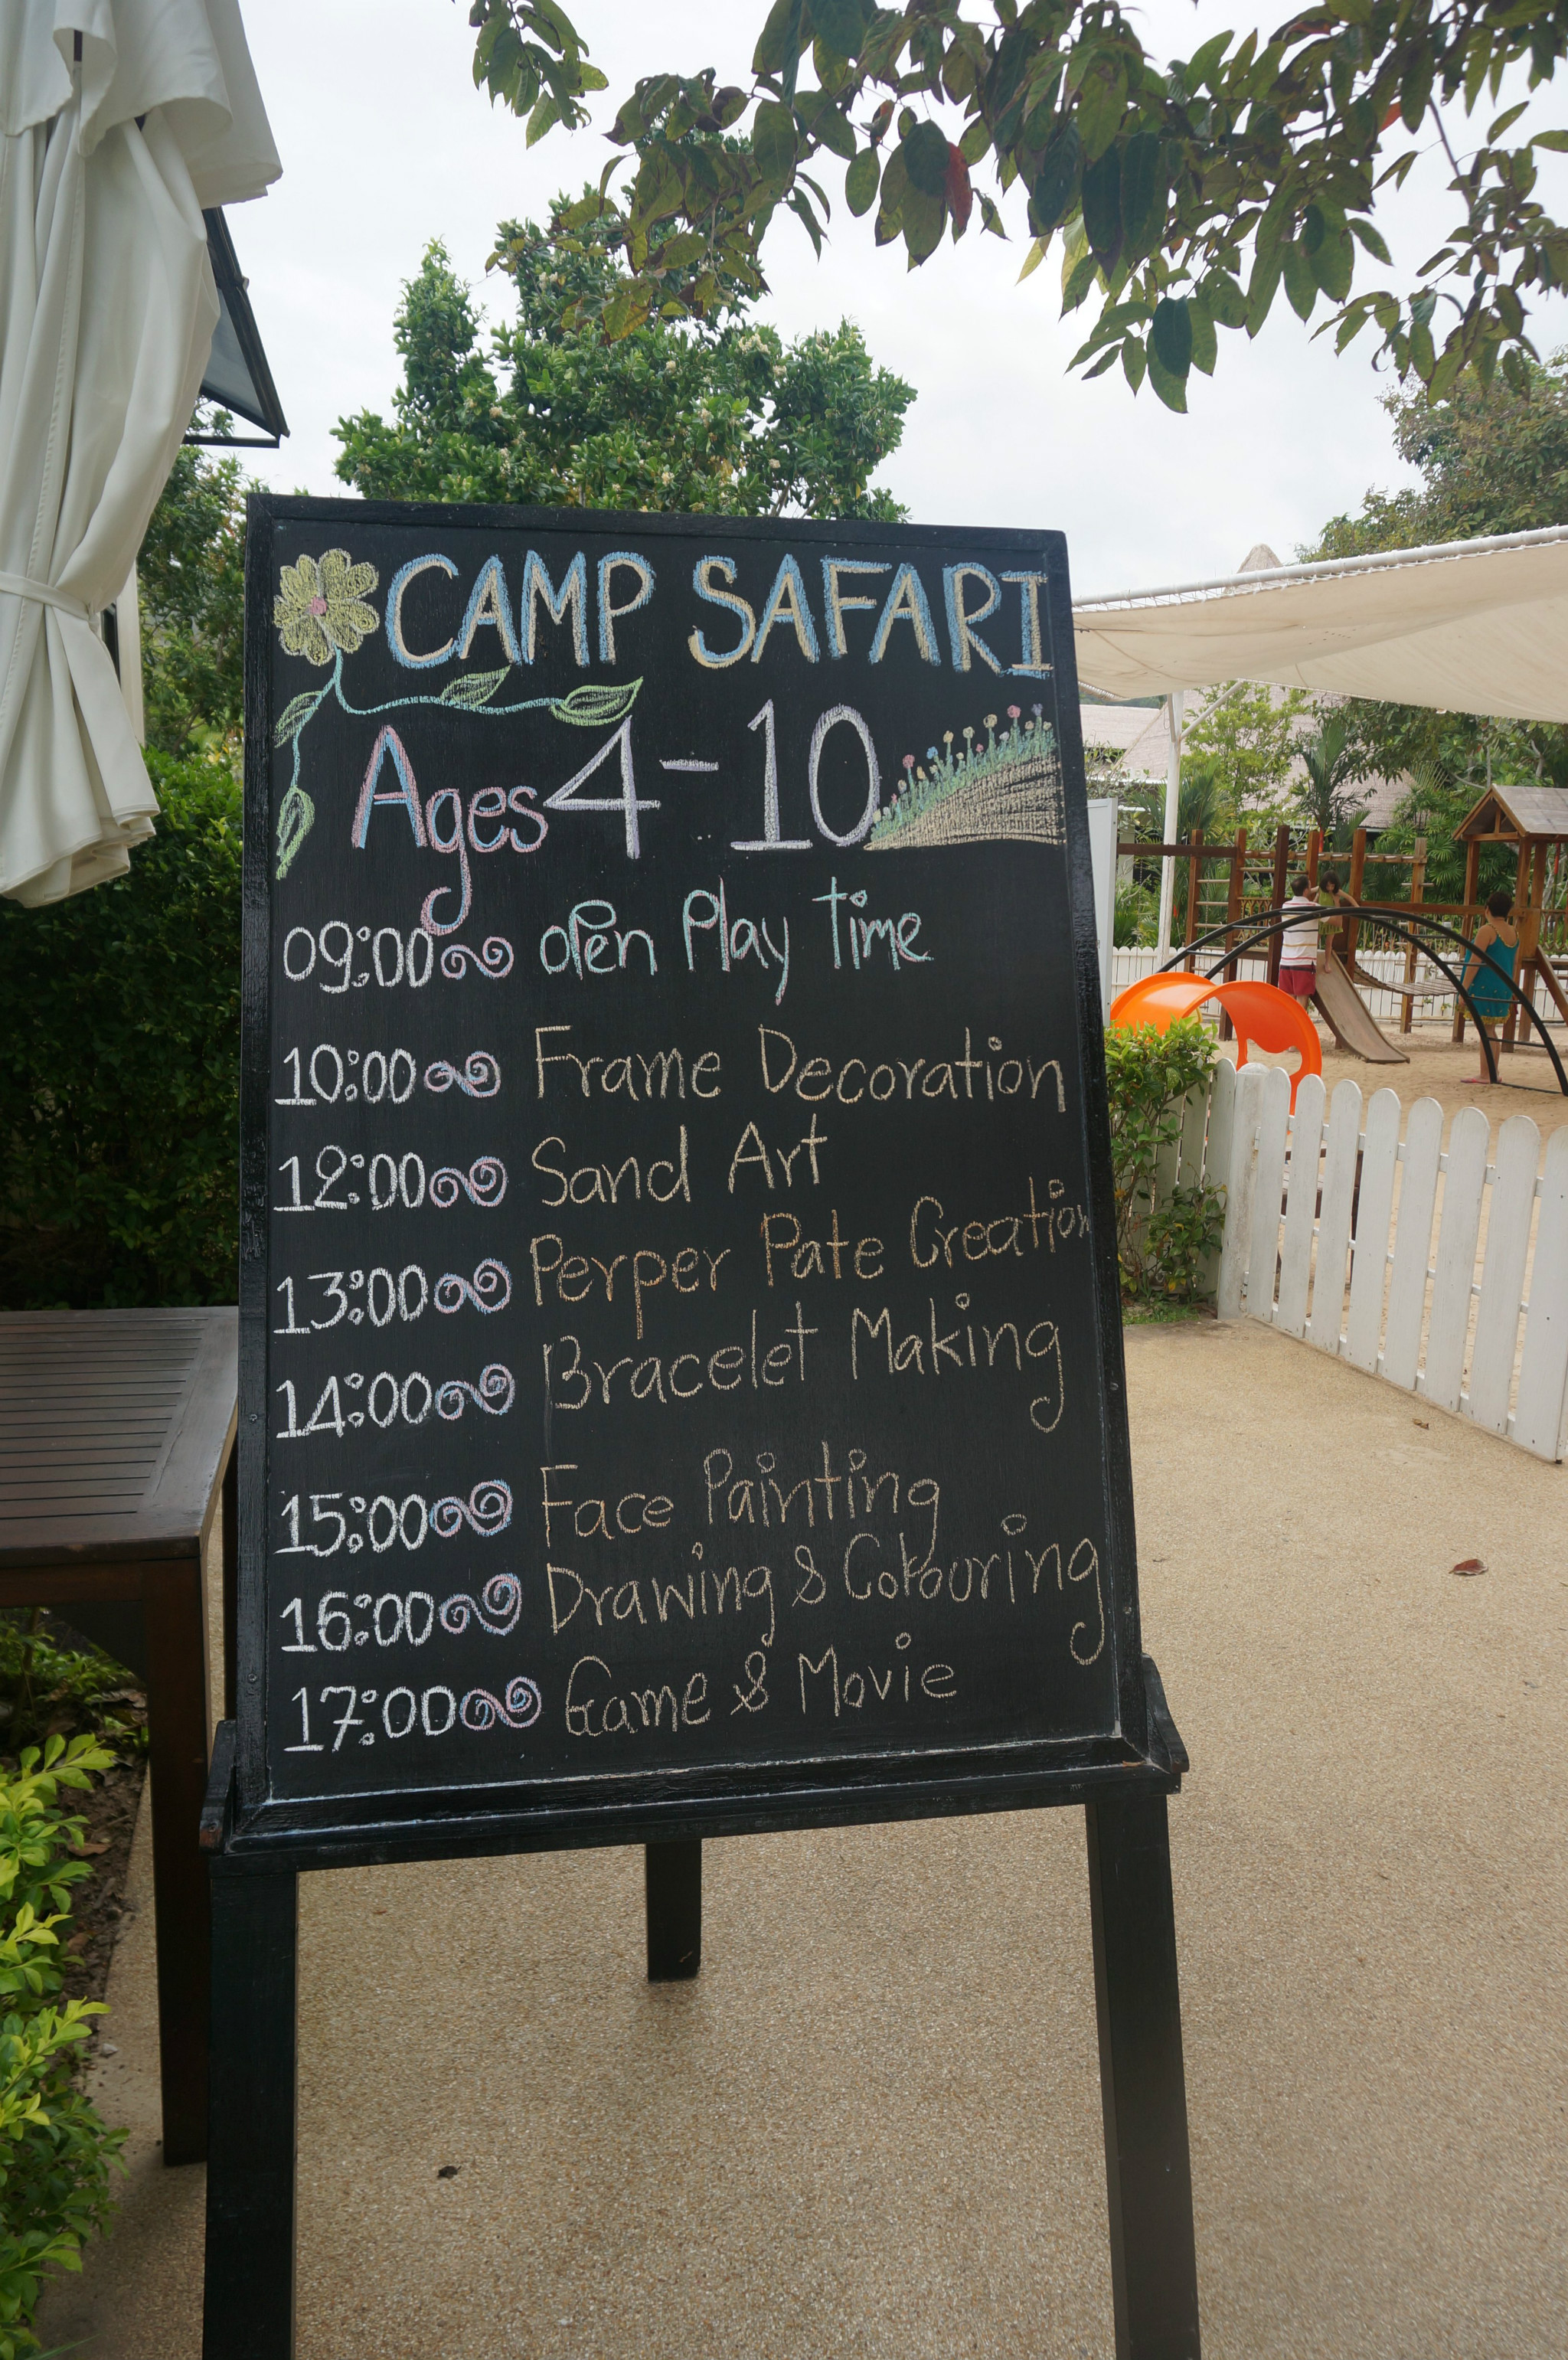 CAMP SAFARI
Ages 4-10
09:00 open Play Time
10:00 Frame Decoration
12:00 Sand Art
13:00 Perper Pate Creation
14:00 Bracelet Making
15:00 Face Painting
16:00 Drawing & Colouring
17:00 Game & Movie